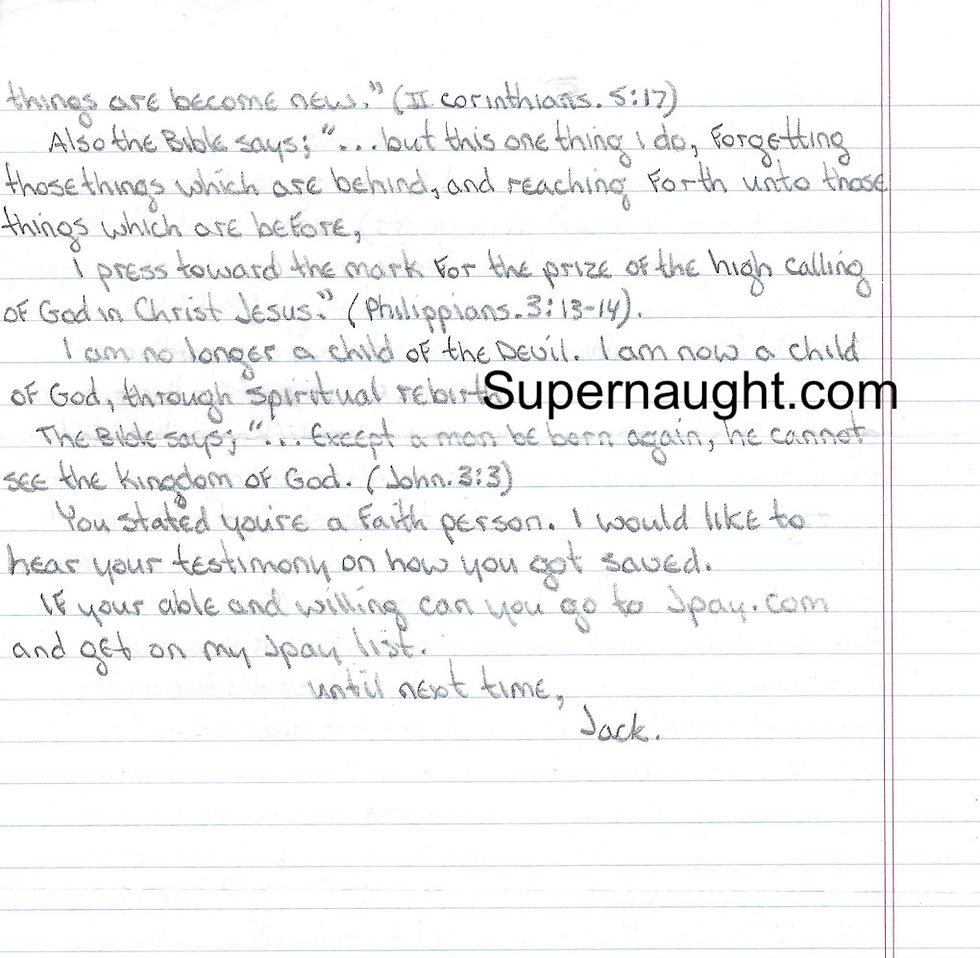 things are become new." (II corinthians. 5:17)
Also the Bible says; "... but this one thing i do, Forgetting
those things which are behind, and reaching Forth unto those
things which are before,
I press toward the mark For the prize of the high calling
of God in Christ Jesus." (Philippians. 3:13-14).
I am no longer a child of the Devil. I am now a child
of God, through spiritual
Supernaught.com
The Bible says; "... Except a man be born again, he cannot
see the kingdom of God. (John. 3:3)
You stated you're a Faith person. I would like to
hear your testimony on how you got saved.
If your able and willing can you go to Jpay.com
and get on my Jpay list.
until next time,
Jack.